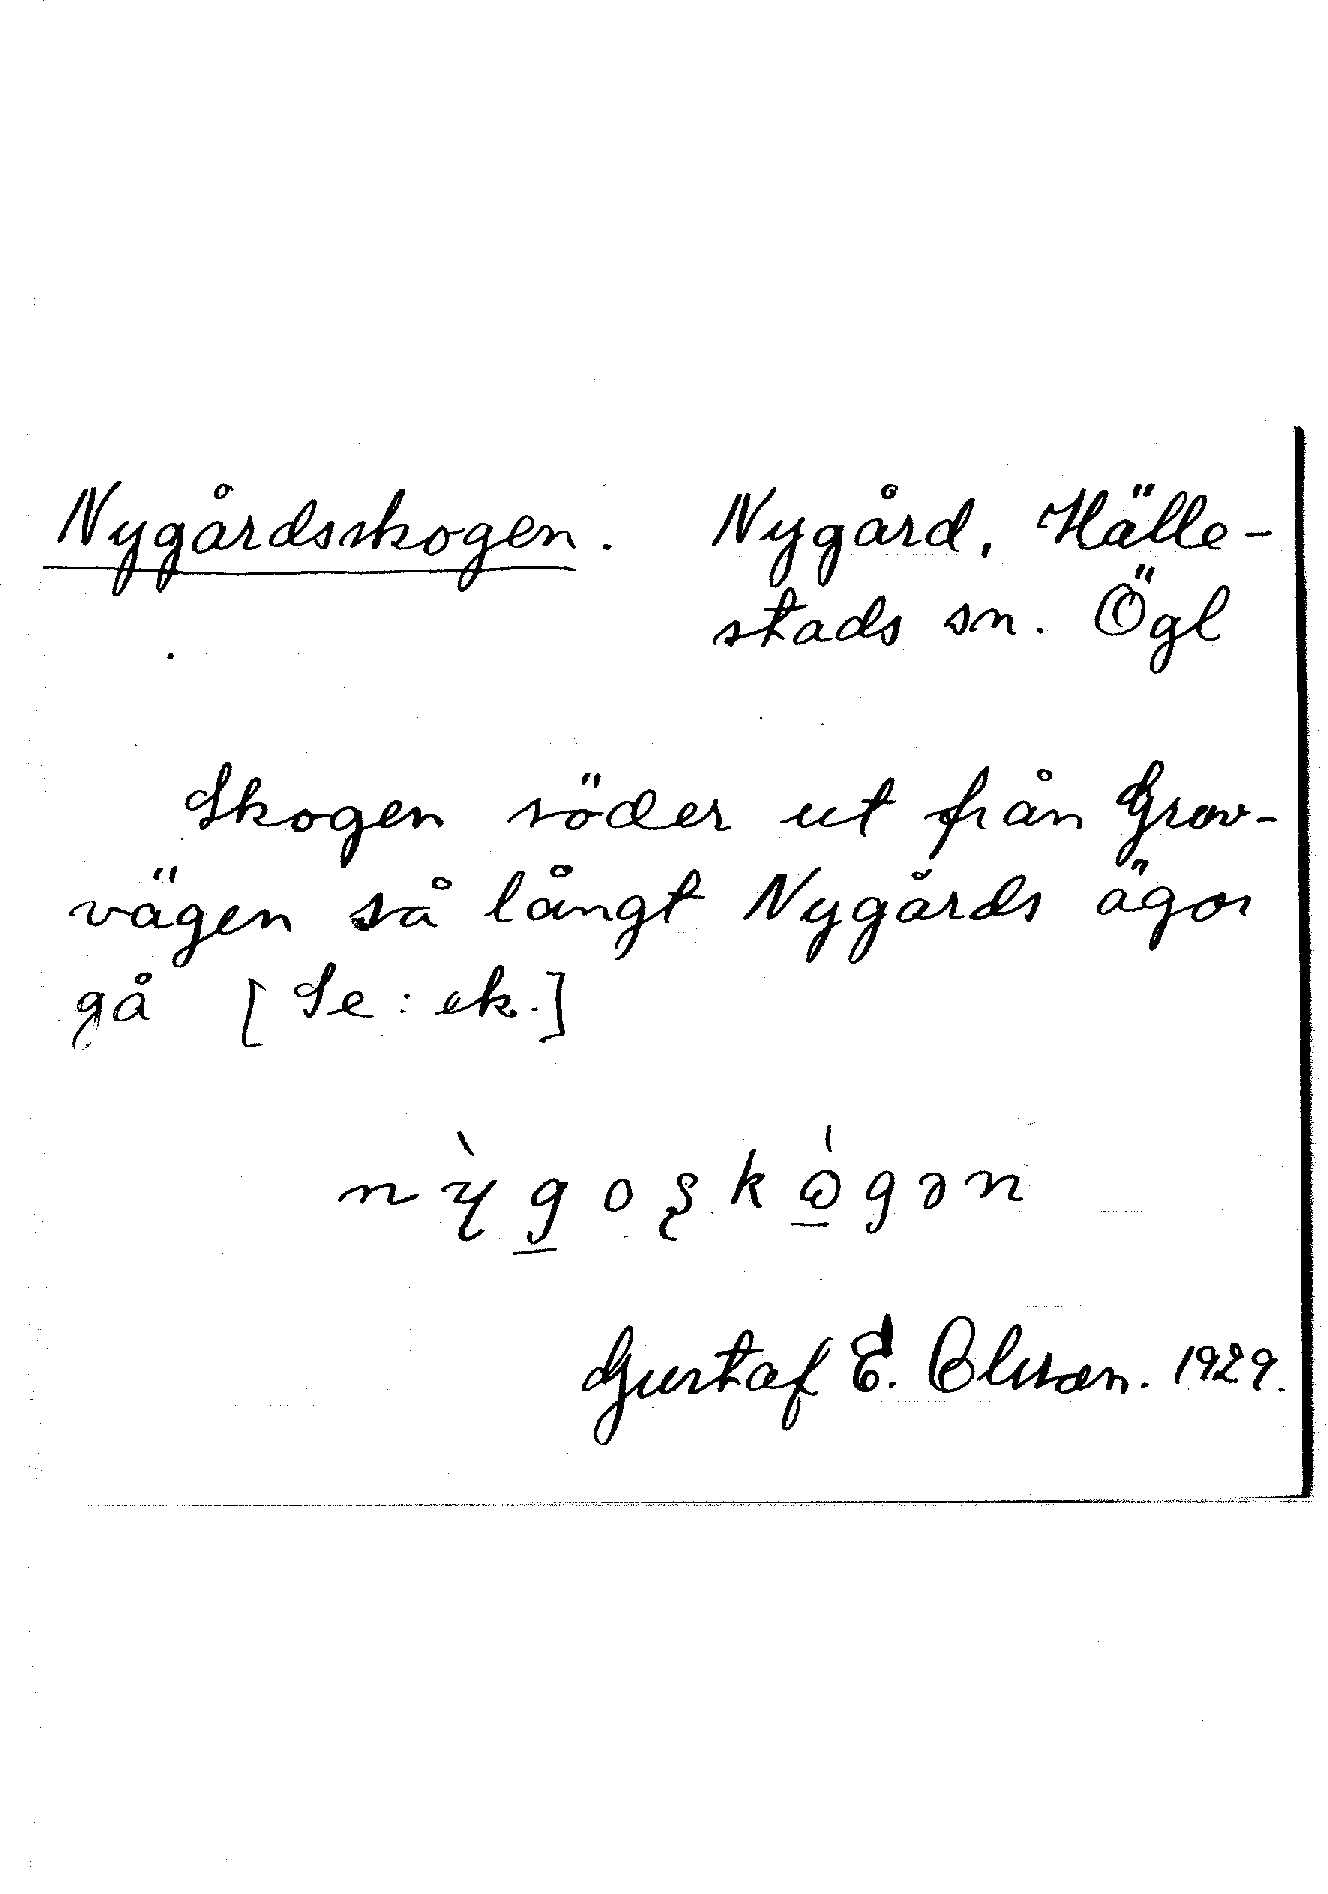 Nygårdsskogen. Nygård, Hälle-
stads sn. Ögl
Skogen söder ut från Grav-
vägen så långt Nygårds ägor
gå [Se: ek.]
nỳgoʂkógən
Gustaf E. Olsson. 1929.